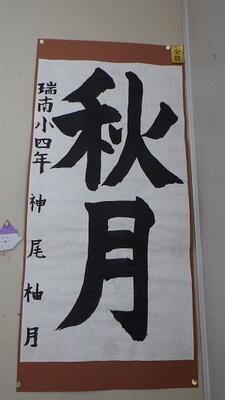 秋月
瑞南小四年 神尾柚月
金賞